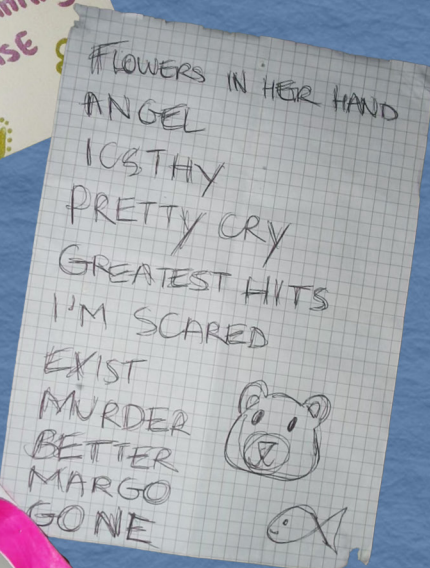 FLOWERS IN HER HAND
ANGEL
IC&THY
PRETTY CRY
GREATEST HITS
I'M SCARED
EXIST
MURDER
BETTER
MARGO
GONE